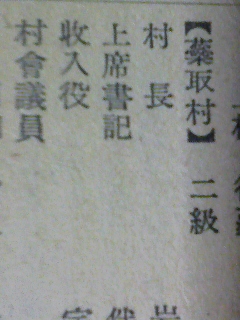 【蘂取村】 二級
村長
上席書記
收入役
村會議員